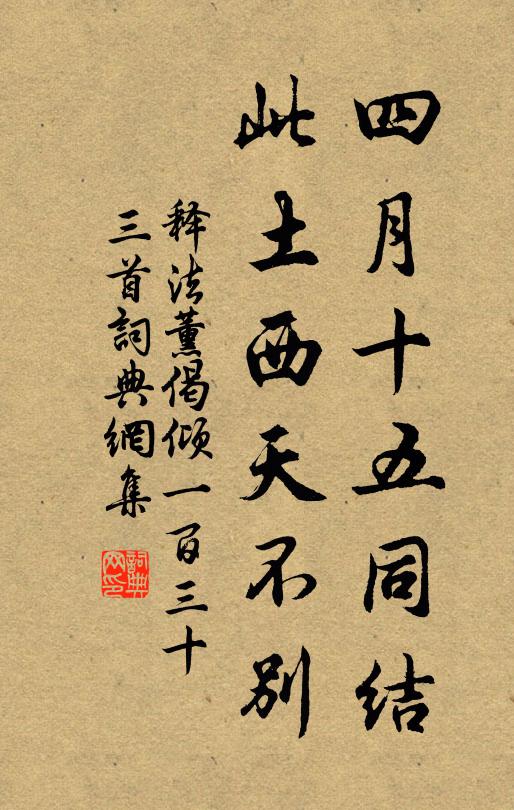 四月十五同结
此土西天不别
释法薰偈倾一百三十
三首詞典網集
詞典網印